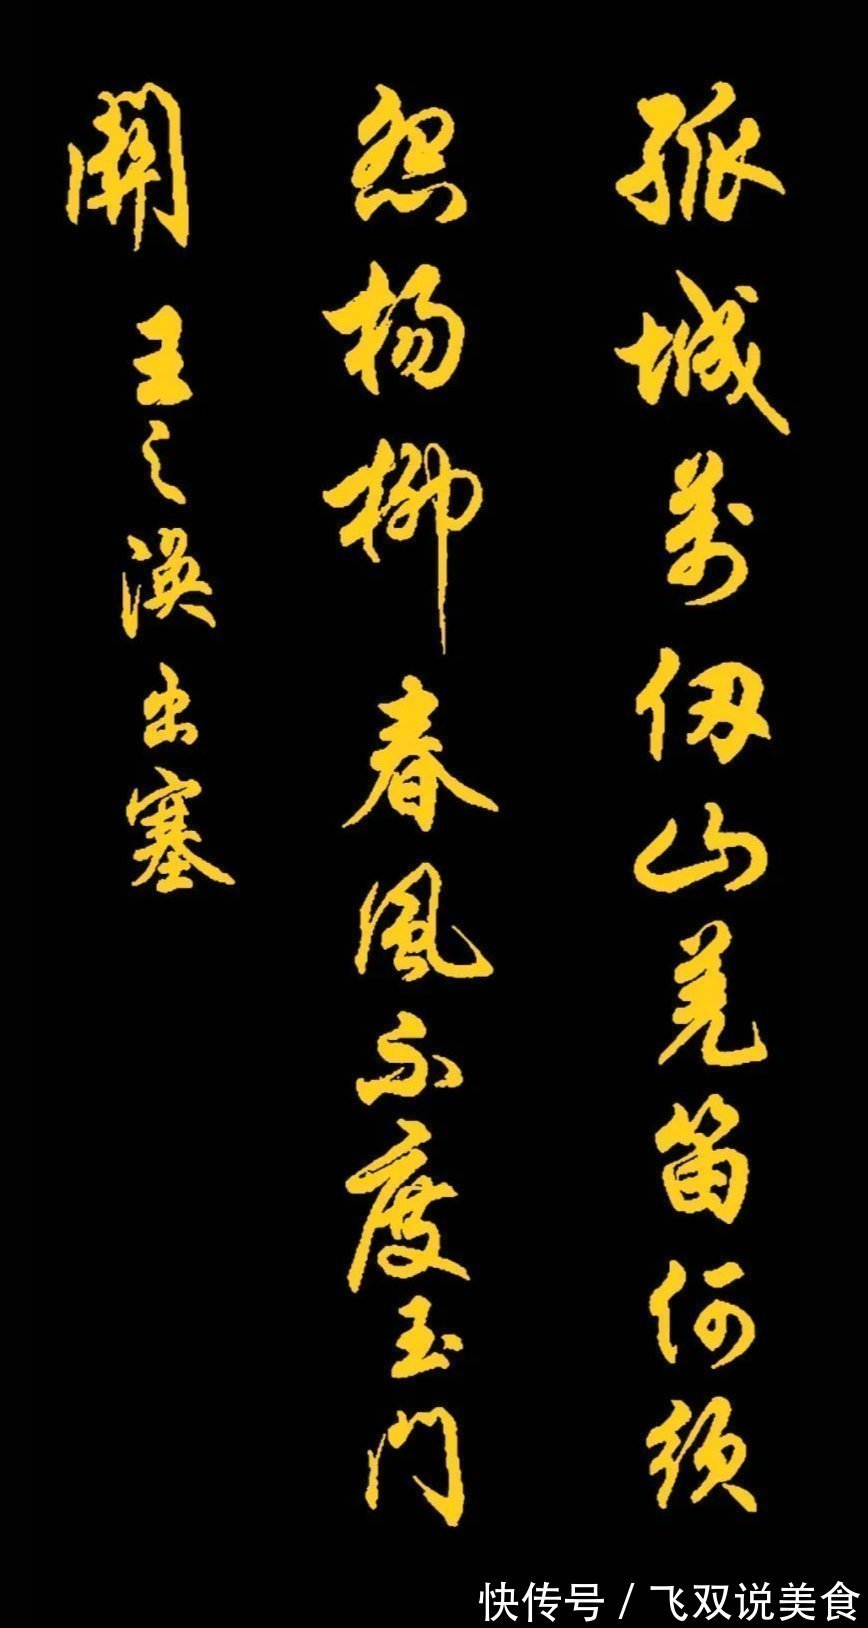 孤城万仞山羌笛何须
怨杨柳春风不度玉门
關王之涣出塞
快传号/飞双说美食